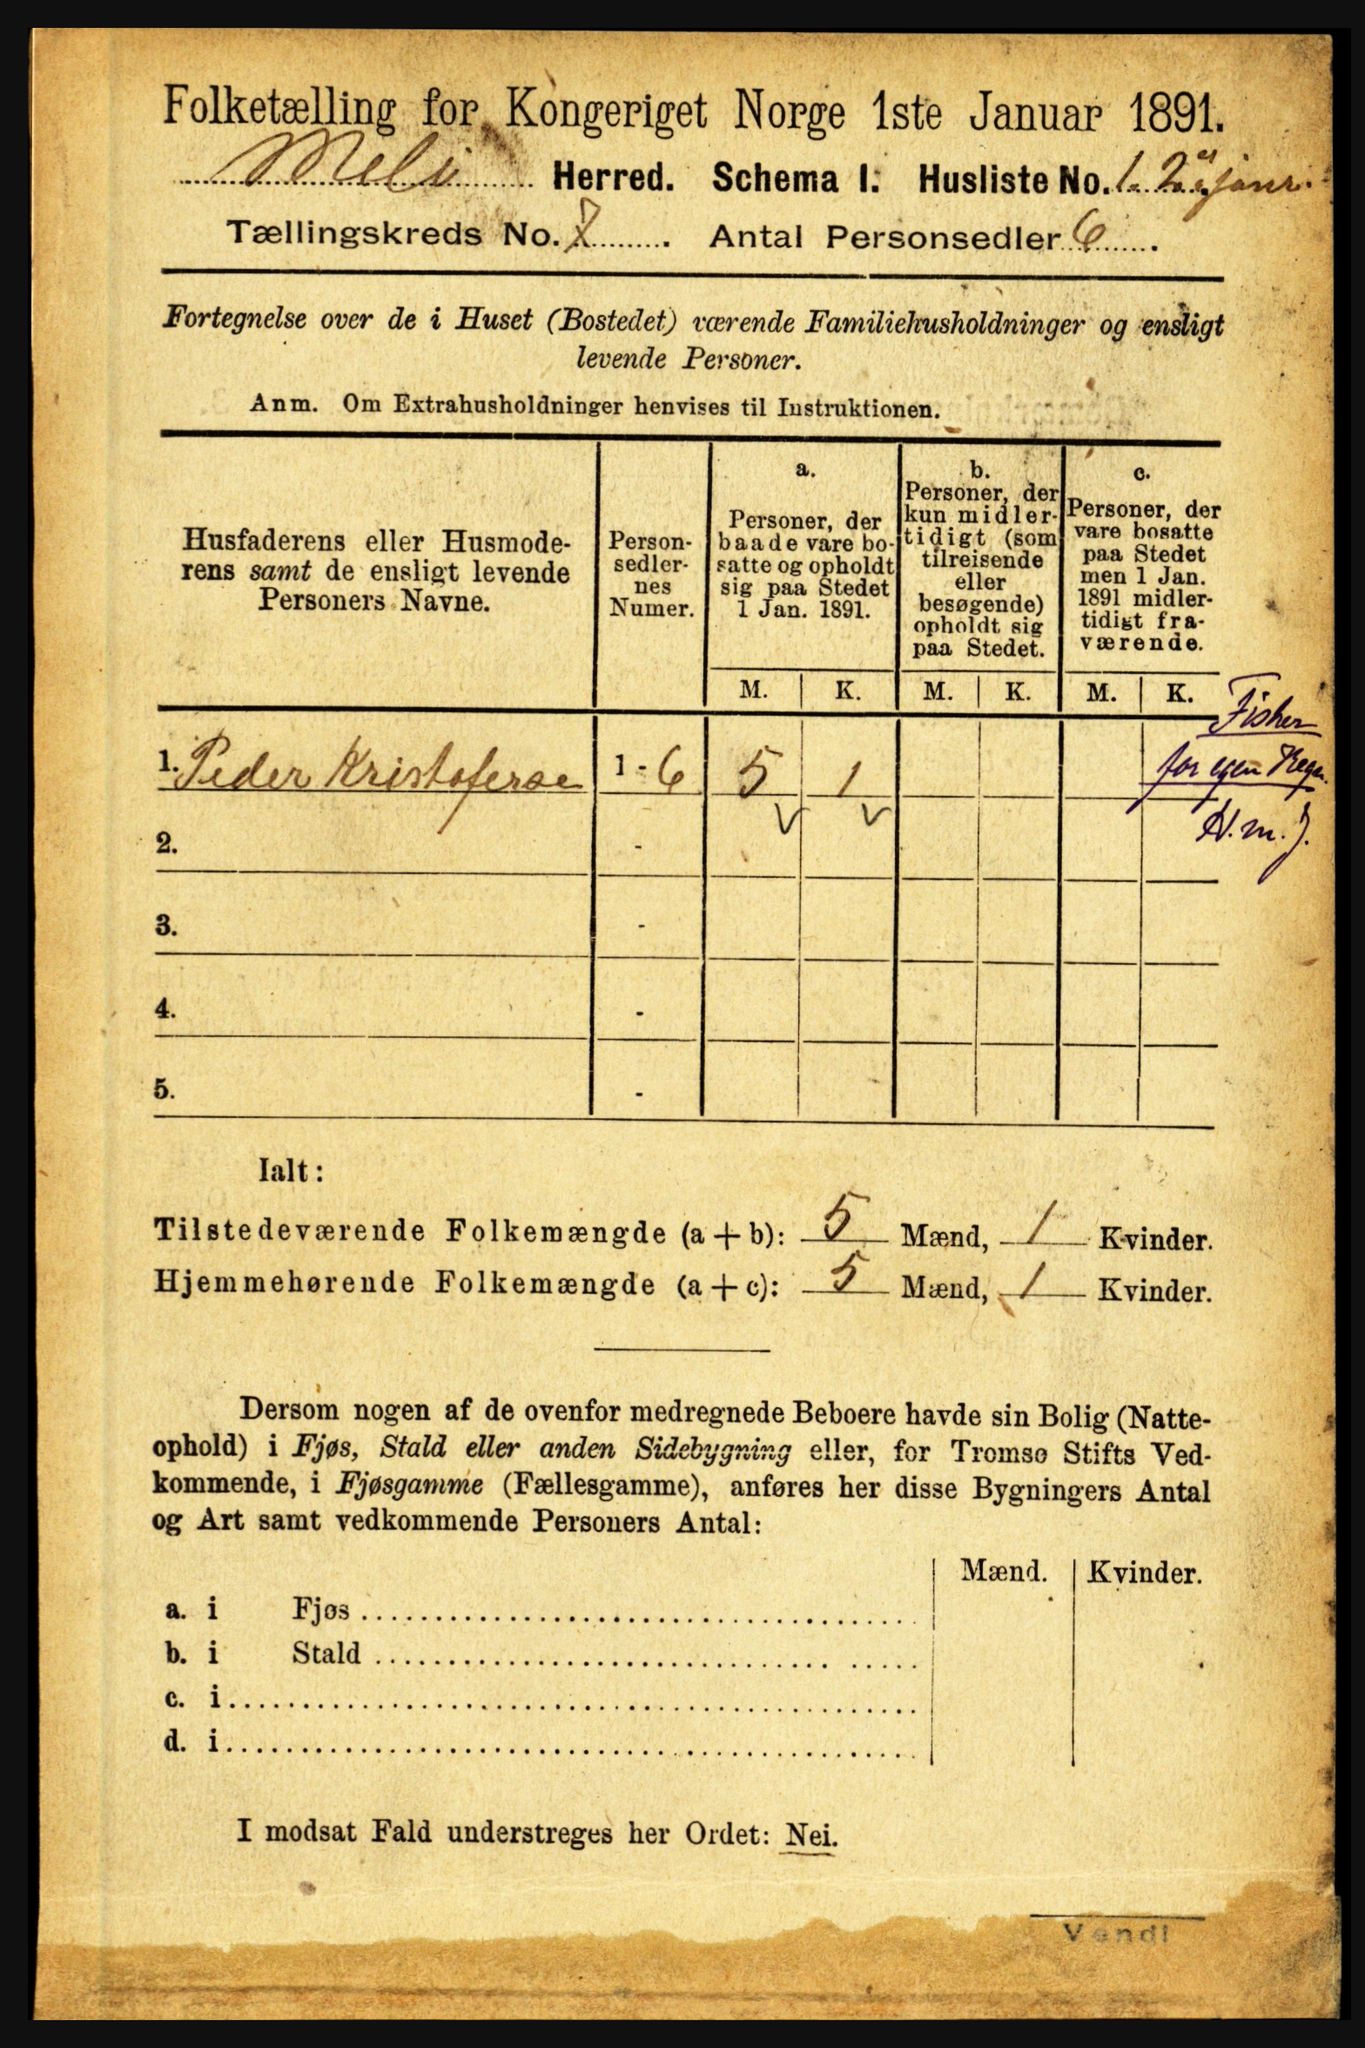 Folketælling for Kongeriget Norge 1ste Januar 1891.
Herred. Schema I. Husliste No. 1.
Tællingskreds No. 7. Antal Personsedler 6.
Fortegnelse over de i Huset (Bostedet) værende Familiehusholdninger og ensligt
levende Personer.
Anm. Om Extrahusholdninger henvises til Instruktionen.
Husfaderens eller Husmode-
rens samt de ensligt levende
Personers Navne.
Person-
sedler-
nes
Numer.
a.
Personer, der
baade vare bo-
satte og opholdt
sig paa Stedet
1 Jan. 1891.
b.
Personer, der
kun midler-
tidigt (som
tilreisende
eller
besøgende)
opholdt sig
paa Stedet.
c.
Personer, der
vare bosatte
paa Stedet
men 1 Jan.
1891 midler-
tidigt fra-
værende.
M. K. M. K. M. K.
Fisker
1. Peder Kristoferse 1 - 6 5 1 for egen Regn.
H.m.J.
2. -
3. -
4. -
5. -
Ialt:
Tilstedeværende Folkemængde (a + b): 5 Mænd, 1 Kvinder.
Hjemmehørende Folkemængde (a + c): 5 Mænd, 1 Kvinder.
Dersom nogen af de ovenfor medregnede Beboere havde sin Bolig (Natte-
ophold) i Fjøs, Stald eller anden Sidebygning eller, for Tromsø Stifts Ved-
kommende, i Fjøsgamme (Fællesgamme), anføres her disse Bygningers Antal
og Art samt vedkommende Personers Antal:
Mænd. Kvinder.
a. i Fjøs
b. i Stald
c. i
d. i
I modsat Fald understreges her Ordet: Nei.
Vendi